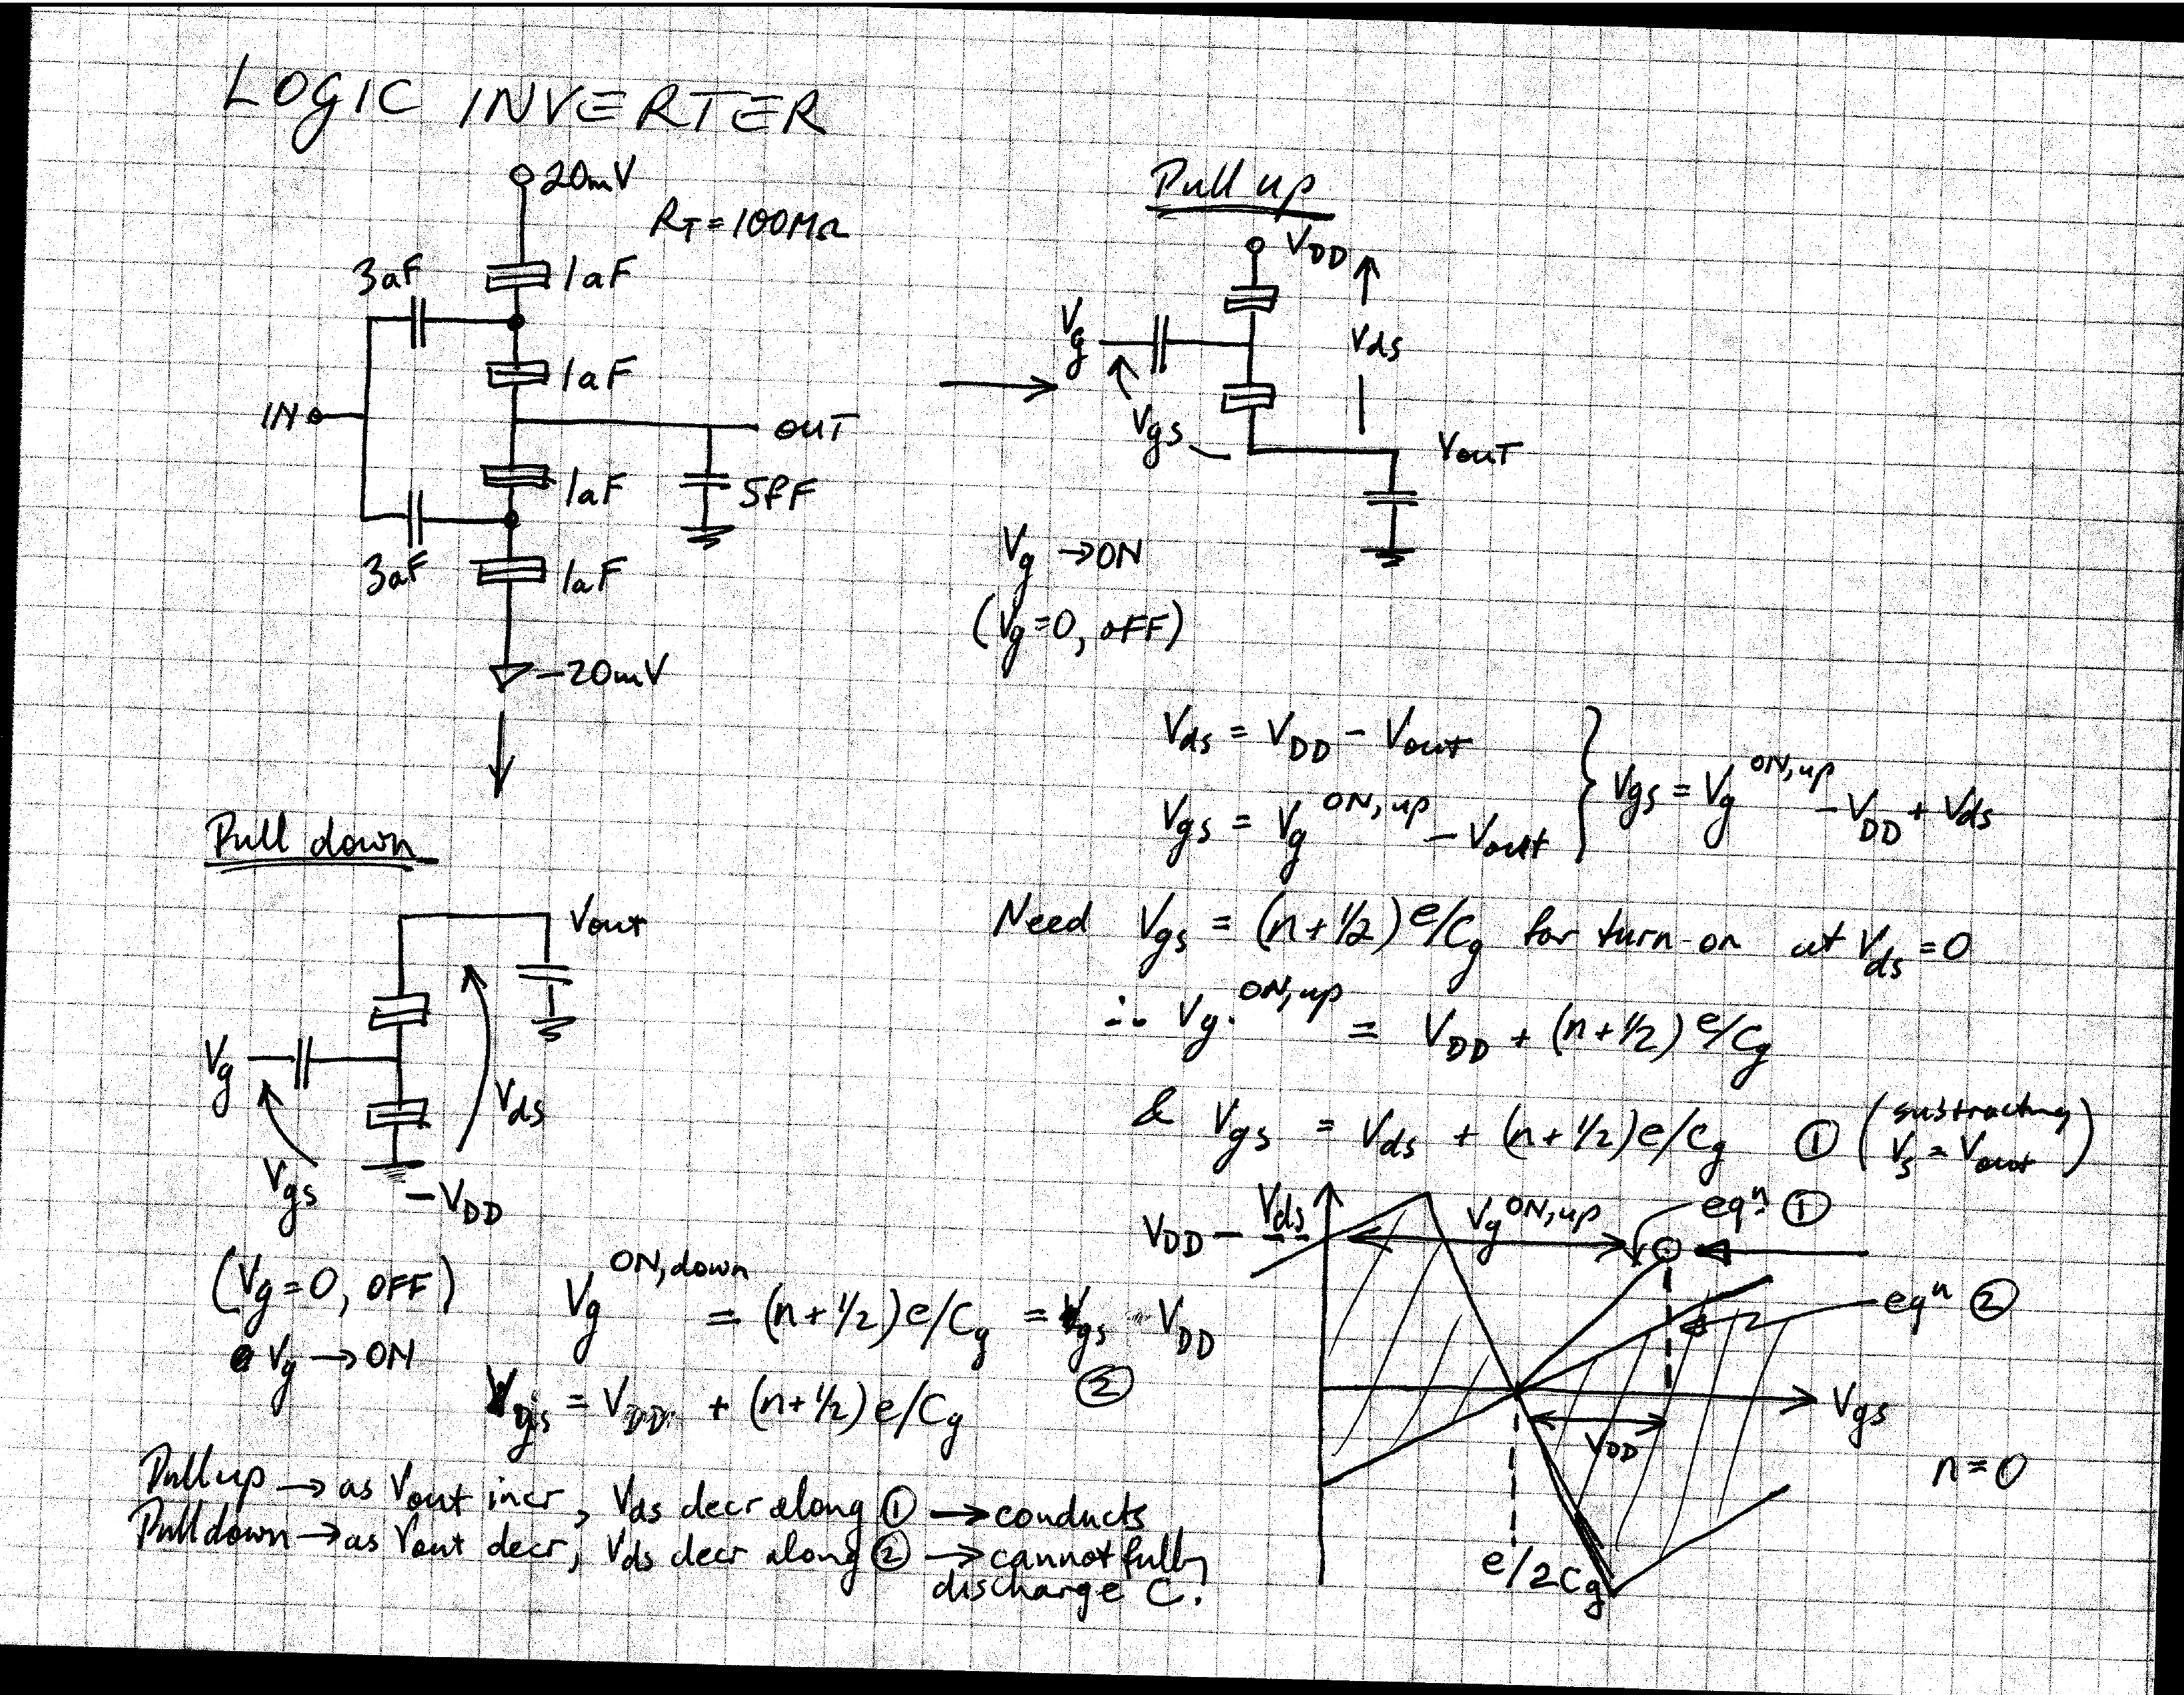 LOGIC INVERTER
20mV
R_T = 100MΩ
3aF
1aF
1aF
IN
OUT
1aF
5fF
3aF
1aF
-20mV
Pull up
V_DD
V_g
V_ds
V_gs
V_OUT
V_g → ON
(V_g = 0, OFF)
V_ds = V_DD - V_out
V_gs = V_g^{ON, up} - V_out
V_gs = V_g^{ON, up} - V_DD + V_ds
Need V_gs = (n+1/2) e/C_g for turn-on at V_ds = 0
∴ V_g^{ON, up} = V_DD + (n+1/2) e/C_g
& V_gs = V_ds + (n+1/2) e/C_g ① (subtracting V_s = V_out)
V_DD
V_ds
V_g^{ON, up}
eqⁿ ①
eqⁿ ②
V_gs
V_DD
n = 0
e/2C_g
Pull down
V_out
V_g
V_ds
V_gs
-V_DD
(V_g = 0, OFF)
V_g → ON
V_g^{ON, down} = (n+1/2) e/C_g = V_gs - V_DD
V_gs = V_DD + (n+1/2) e/C_g ②
Pull up → as V_out incr, V_ds decr along ① → conducts
Pull down → as V_out decr, V_ds decr along ② → cannot fully
discharge C.